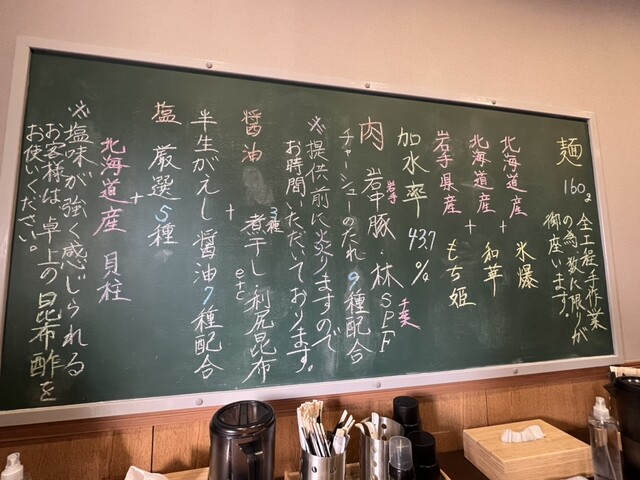 麺 160g
全工程手作業
の為、数に限りが
御座います。
北海道産 氷爆
+
北海道産 和華
+
岩手県産 もち姫
加水率 43.7%
肉 岩手 岩中豚・林SPF 千葉
チャーシューのたれ 9種配合
※提供前に炙りますので
お時間いただいております。
醤油 3種 煮干し・利尻昆布 etc
+
半生がえし 醤油7種配合
塩 厳選5種
+
北海道産 貝柱
※塩味が強く感じられる
お客様は、卓上の昆布酢を
お使いください。